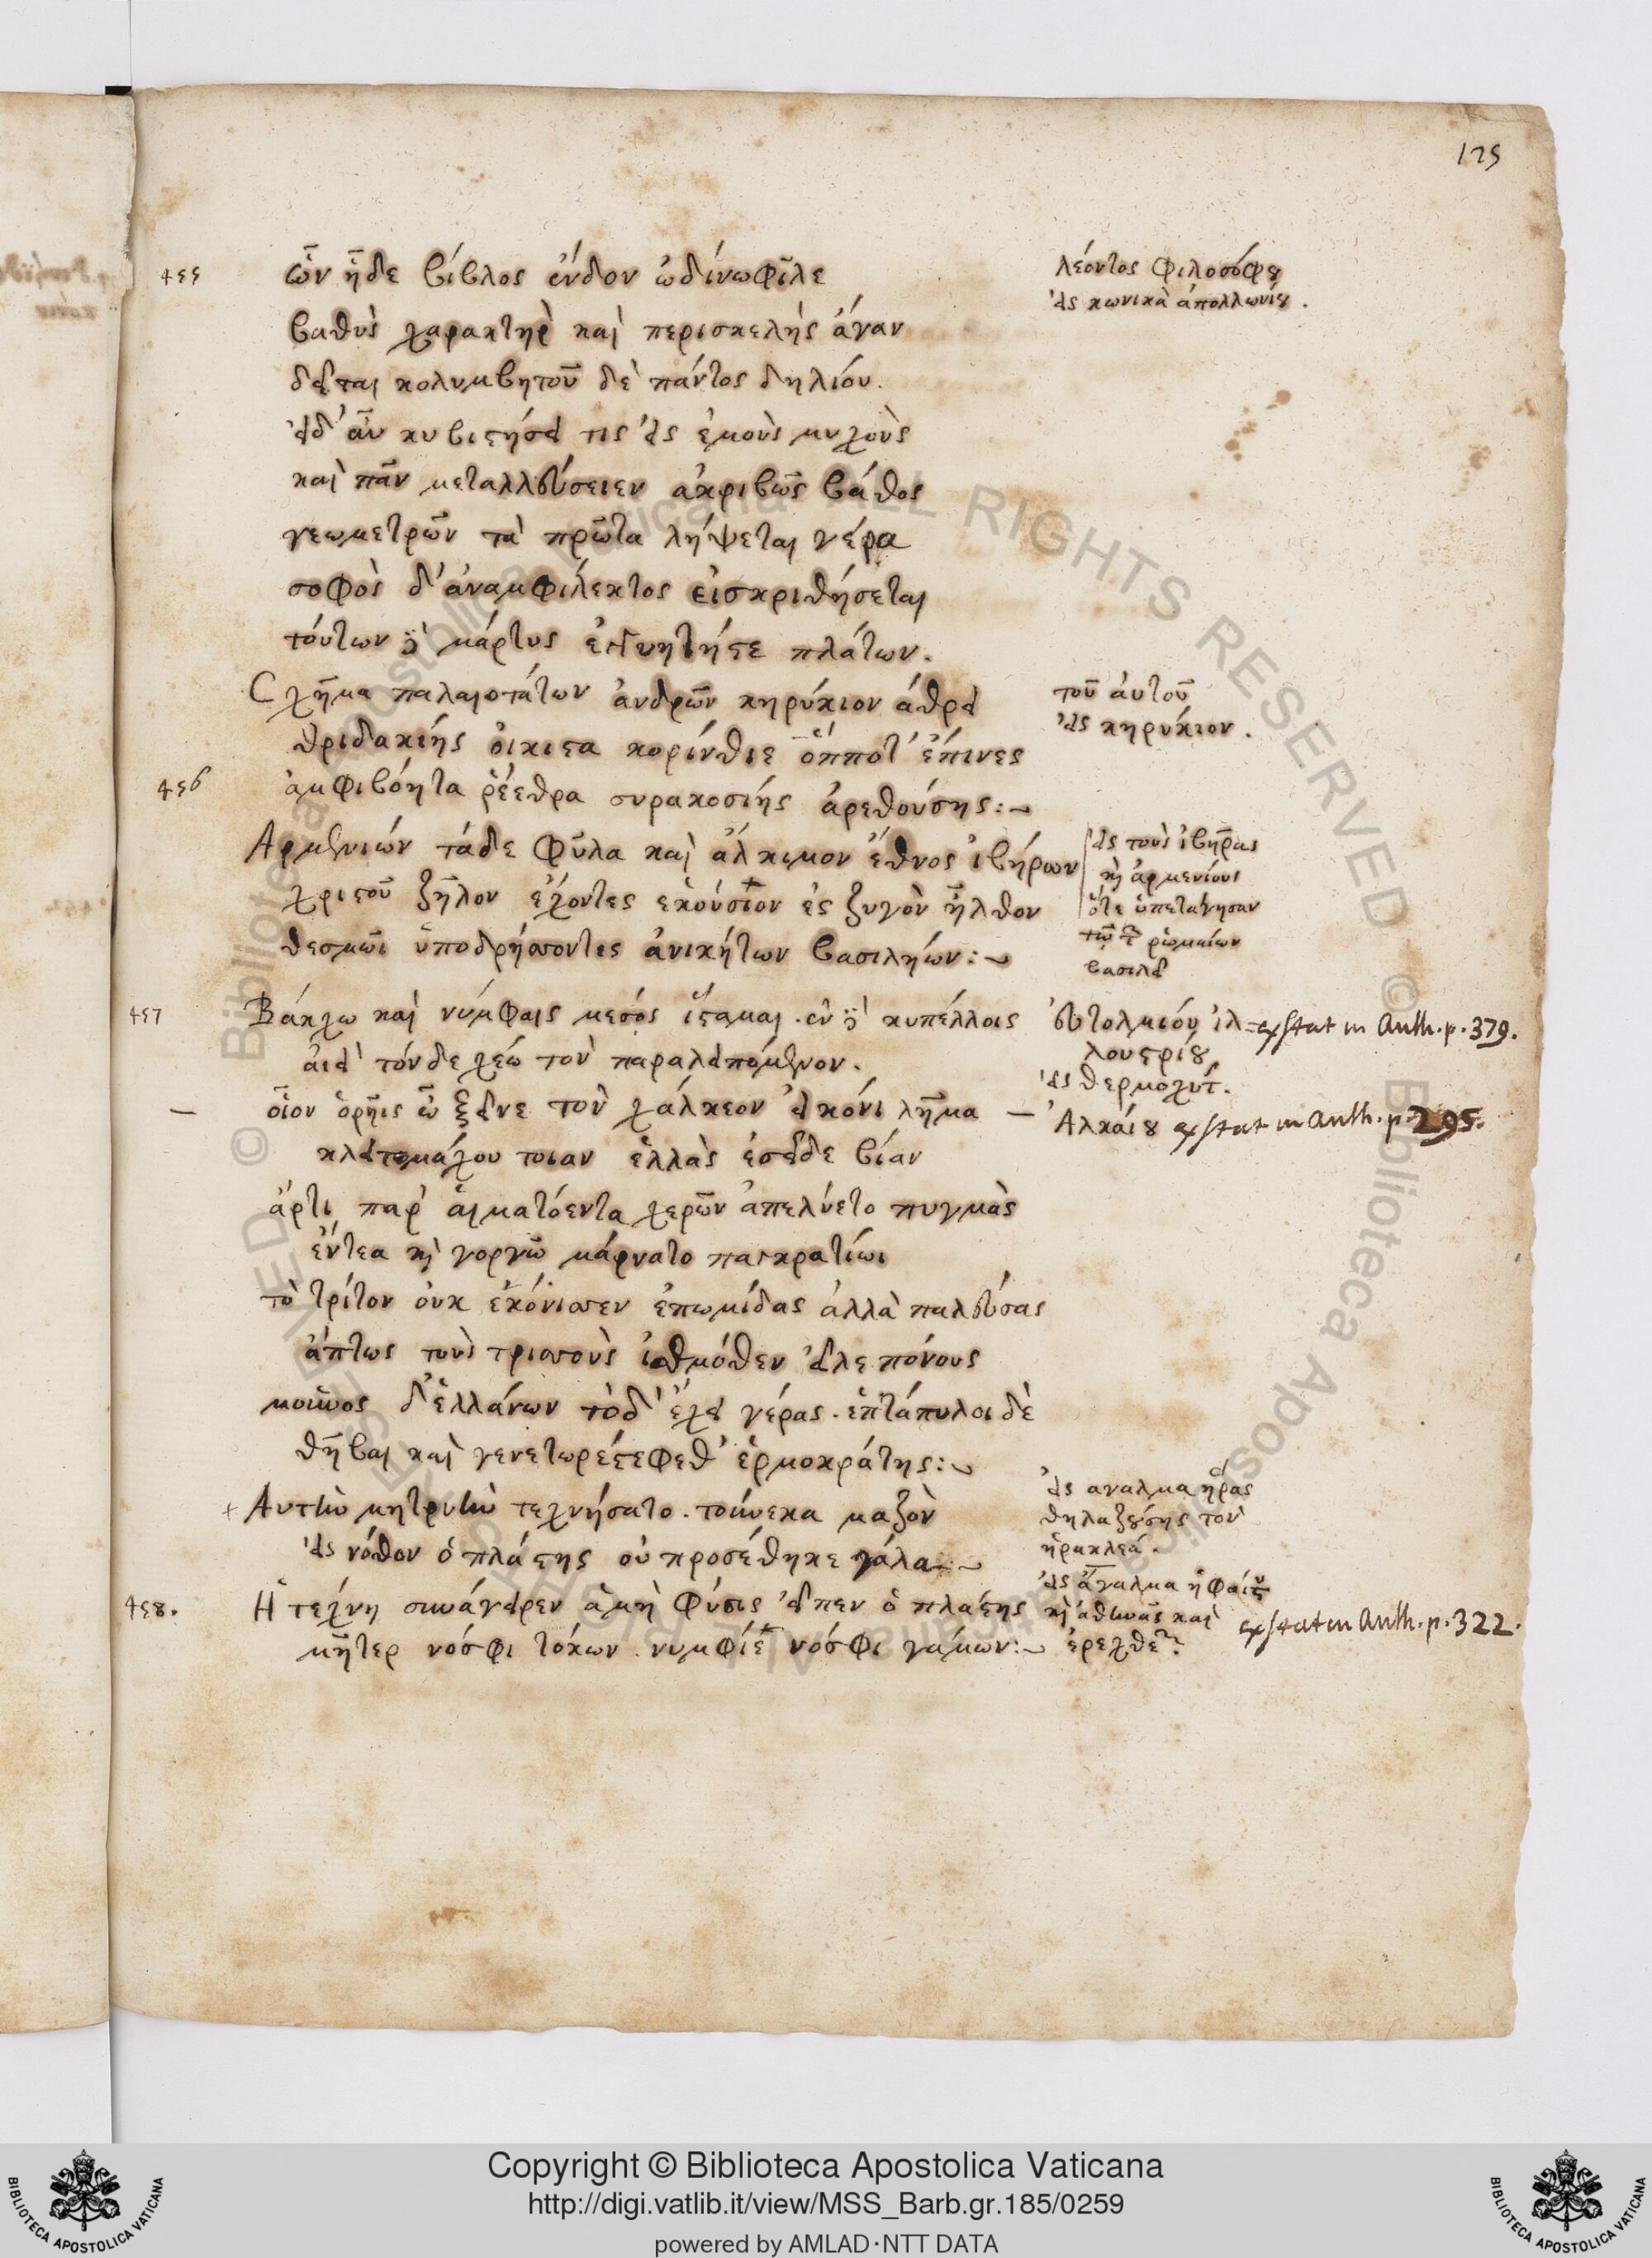 125
455
ὧν ἥδε βίβλος ἔνδον ὠδίνω φίλε
βαθὺς χαρακτὴρ καὶ περισκελὴς ἄγαν
δεῖται κολυμβητοῦ δὲ πάντος δηλίου.
εἰ δ' ἂν κυβιστήσει τις εἰς ἐμοὺς μυχοὺς
καὶ πᾶν μεταλλεύσειεν ἀκριβῶς βάθος
γεωμετρῶν τὰ πρῶτα λήψεται γέρα
σοφὸς δ' ἀναμφιλέκτος εἰσκριθήσεται
τούτων δὲ μάρτυς πλάτων.
Σχῆμα παλαιοτάτων ἀνδρῶν κηρύκιον ἄθρει
θριδακίης οἴκιστα κορίνθιε ὁππότ' ἔπινες
456
ἀμφιβόητα ῥέεθρα συρακοσίης ἀρεθούσης:
Αρμενιών τάδε φῦλα καὶ ἄλκιμον ἔθνος ἰβήρων
χριστοῦ ζῆλον ἔχοντες ἑκούσιον ἐς ζυγὸν ἦλθον
θεσμῶι ὑποδρήσσοντες ἀνικήτων βασιλήων:
457
Βάκχω καὶ νύμφαις μεσός ἵσταμαι. ἐν δὲ κυπέλλοις
ἀιεὶ τόνδε χέω τον παραλειπόμενον.
— οἷον ὁρῆις ὦ ξεῖνε τὸν χάλκεον εἰκόνι λῆμα —
κλειτομάχου τοιαν ἑλλὰς ἐσεῖδε βίαν
ἄρτι παρ' αἱματόεντα χερῶν ἀπελύετο πυγμὰς
ἔντεα καὶ γοργῶ μάρνατο παγκρατίωι
τὸ τρίτον οὐκ ἐκόνισσεν ἐπωμίδας ἀλλὰ παλεύσας
ἄπτως τοὺς τρισσοὺς ἰσθμόθεν εἷλε πόνους
μοῦνος δ' ἑλλάνων τόδ' ἔχει γέρας. ἑπτάπυλοι δὲ
θῆβαι καὶ γενετωρ ἐστεφεθ' ἑρμοκράτης:
+ Αυτὴν μητρυιὴν τεχνήσατο. τούνεκα μαζὸν
εἰς νόθον ὁ πλάστης οὐ προσέθηκε γάλα
458.
Ἡ τέχνη συνάγειρεν ἁμὴ φύσις εἶπεν ὁ πλάστης
μῆτερ νόσφι τόκων. νυμφίε νόσφι γάμων:
λέοντος φιλοσόφου
εἰς κωνικὰ ἀπολλωνίου.
τοῦ ἀυτοῦ
εἰς κηρύκιον.
εἰς τοὺς ἰβήρας
καὶ ἀρμενίους
ὅτε ὑπετάγησαν
τῶ τῶν ῥωμαίων
βασιλεῖ
ἐυτολμιόυ ἰλ= exstat in Anth. p. 379.
λουστρίου
εἰς θερμοχύτ.
Ἀλκάιου exstat in Anth. p. 295.
εἰς αγαλμα ἥρας
θηλαζούσης τον
ἡρακλεά.
εἰς ἄγαλμα ἡφαίστου
καὶ ἀθηνᾶς καὶ exstat in Anth. p. 322.
ἐρεχθέως
Copyright © Biblioteca Apostolica Vaticana
http://digi.vatlib.it/view/MSS_Barb.gr.185/0259
powered by AMLAD·NTT DATA
BIBLIOTECA APOSTOLICA VATICANA
BIBLIOTECA APOSTOLICA VATICANA